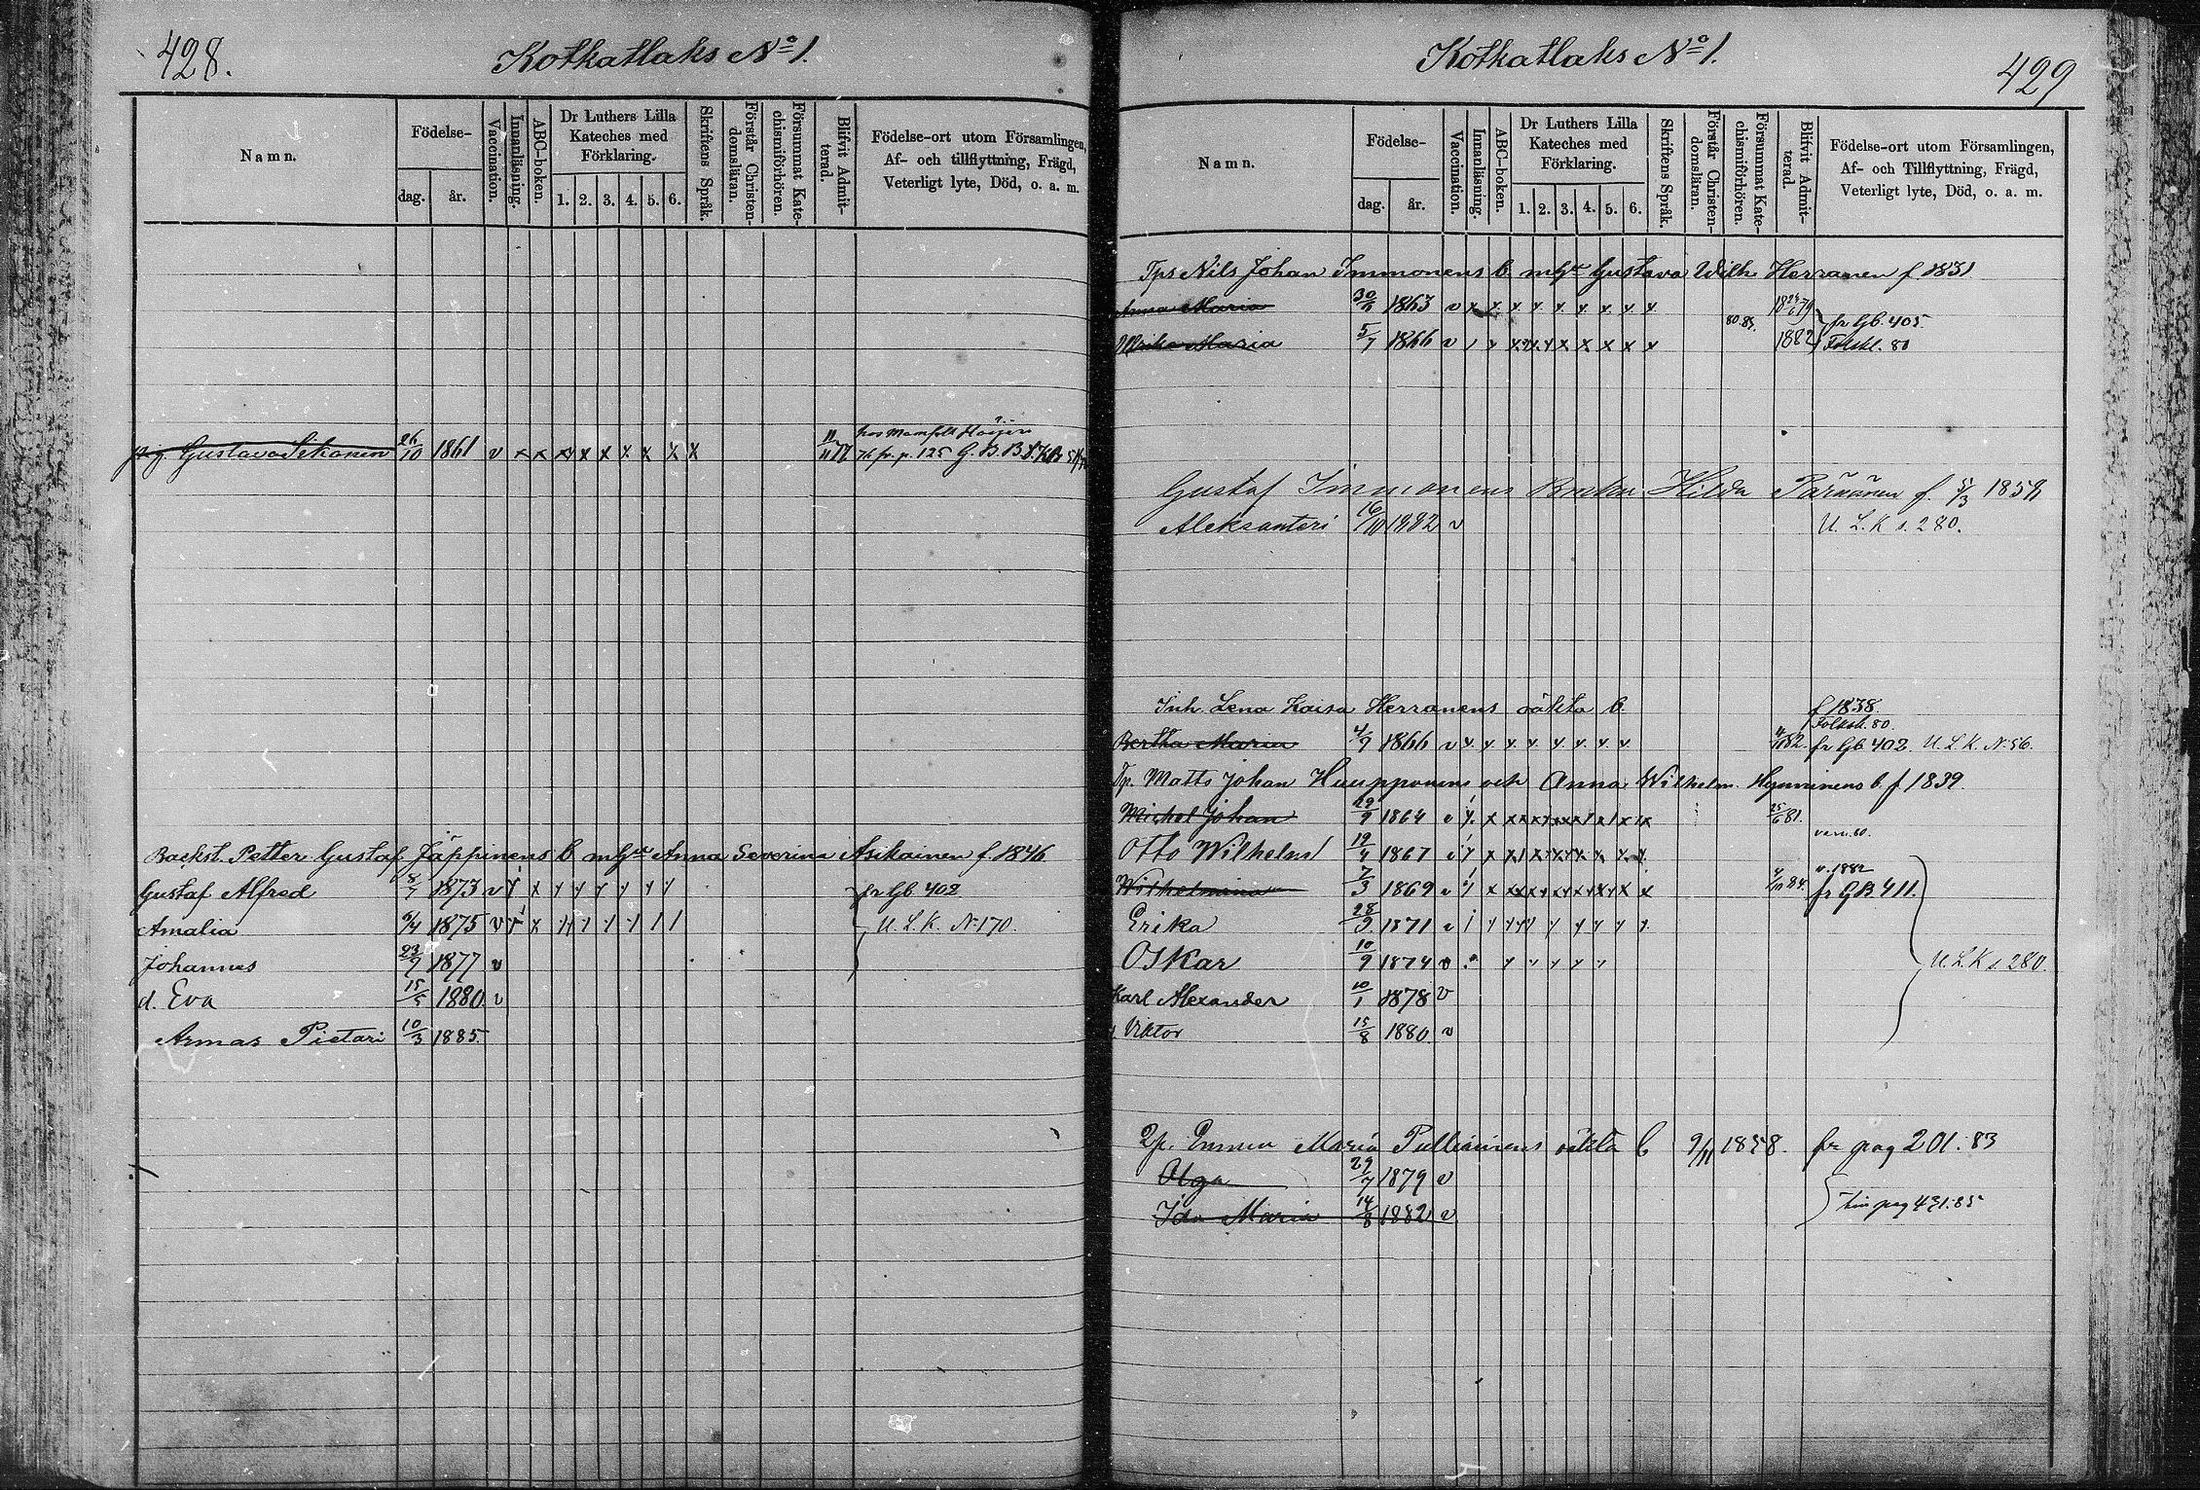 428.
Kotkatlaks No 1.
Namn.
Födelse-
dag.
år.
Vaccination.
Innanläsning.
ABC-boken.
Dr Luthers Lilla
Kateches med
Förklaring.
1. 2. 3. 4. 5. 6.
Skriftens Språk.
Förstår Christen-
domsläran.
Försummat Kate-
chismiförhören.
Blifvit Admit-
terad.
Födelse-ort utom Församlingen,
Af- och tillflyttning, Frägd,
Veterligt lyte, Död, o. a. m.
hos
pig. Gustava 26/10 1861 v x x x x x x x x x 11/11 77 76 fr. p. 125 G. B.
Backst. Petter Gustaf Jäppinens b. m hu Anna Severina Asikainen f. 1846
Gustaf Alfred 8/7 1873 v fr Gb. 402.
Amalia 1875 v U. L. K. N. 170.
Johannes 23/7 1877 v
d. Eva 15/5 1880 v
Armas Pietari 10/3 1885.
Kotkatlaks No 1.
429
Namn.
Födelse-
dag.
år.
Vaccination.
Innanläsning.
ABC-boken.
Dr Luthers Lilla
Kateches med
Förklaring.
1. 2. 3. 4. 5. 6.
Skriftens Språk.
Förstår Christen-
domsläran.
Försummat Kate-
chismiförhören.
Blifvit Admit-
terad.
Födelse-ort utom Församlingen,
Af- och Tillflyttning, Frägd,
Veterligt lyte, Död, o. a. m.
Tps Nils Johan Immonens b. m hu Gustava Wilh. Herranen f 1831
Anna Maria 1863 v x x x x x x x x x
80.85. fr Gb. 405.
Ulrika Maria 5/7 1866 v 1882 Folksk. 80
Gustaf Immonens Hilda f. 5/3
Aleksanteri 16/10 1882 v U. L. K s. 280.
Inh. Lena Kaisa Herranens oäkta b. f 1838.
Folksk. 80.
Bertha Maria 4/9 1866 v 82. fr Gb. 402. U. L. K. N. 56.
Tp. Matts Johan Huupponens och Anna Wilhelm. Hynninens b. f 1839.
Michel Johan 29/9 1864 v 25/6 81.
Otto Wilhelm 19/4 1867 v
v. 1882
Wilhelmina 7/3 1869 v 84. fr GB 411.
Erika 28/9 1871 v
Oskar 10/9 1874 v U. L. K s. 280.
Karl Alexander 10/1 1878 v
Viktor 15/8 1880 v
Maria oäkta b 9/11 1858. fr pag 201. 83
Olga 29/7 1879 v
Ida Maria 14/8 1882 v pag 431. 85